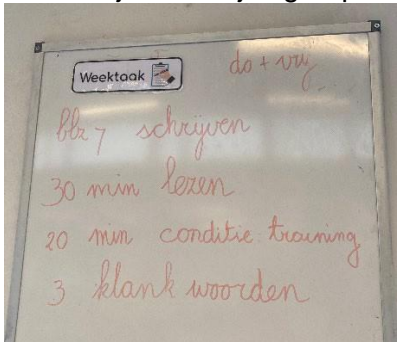 Weektaak
do + vrij
blz 7 schrijven
30 min lezen
20 min conditie training
3 klank woorden